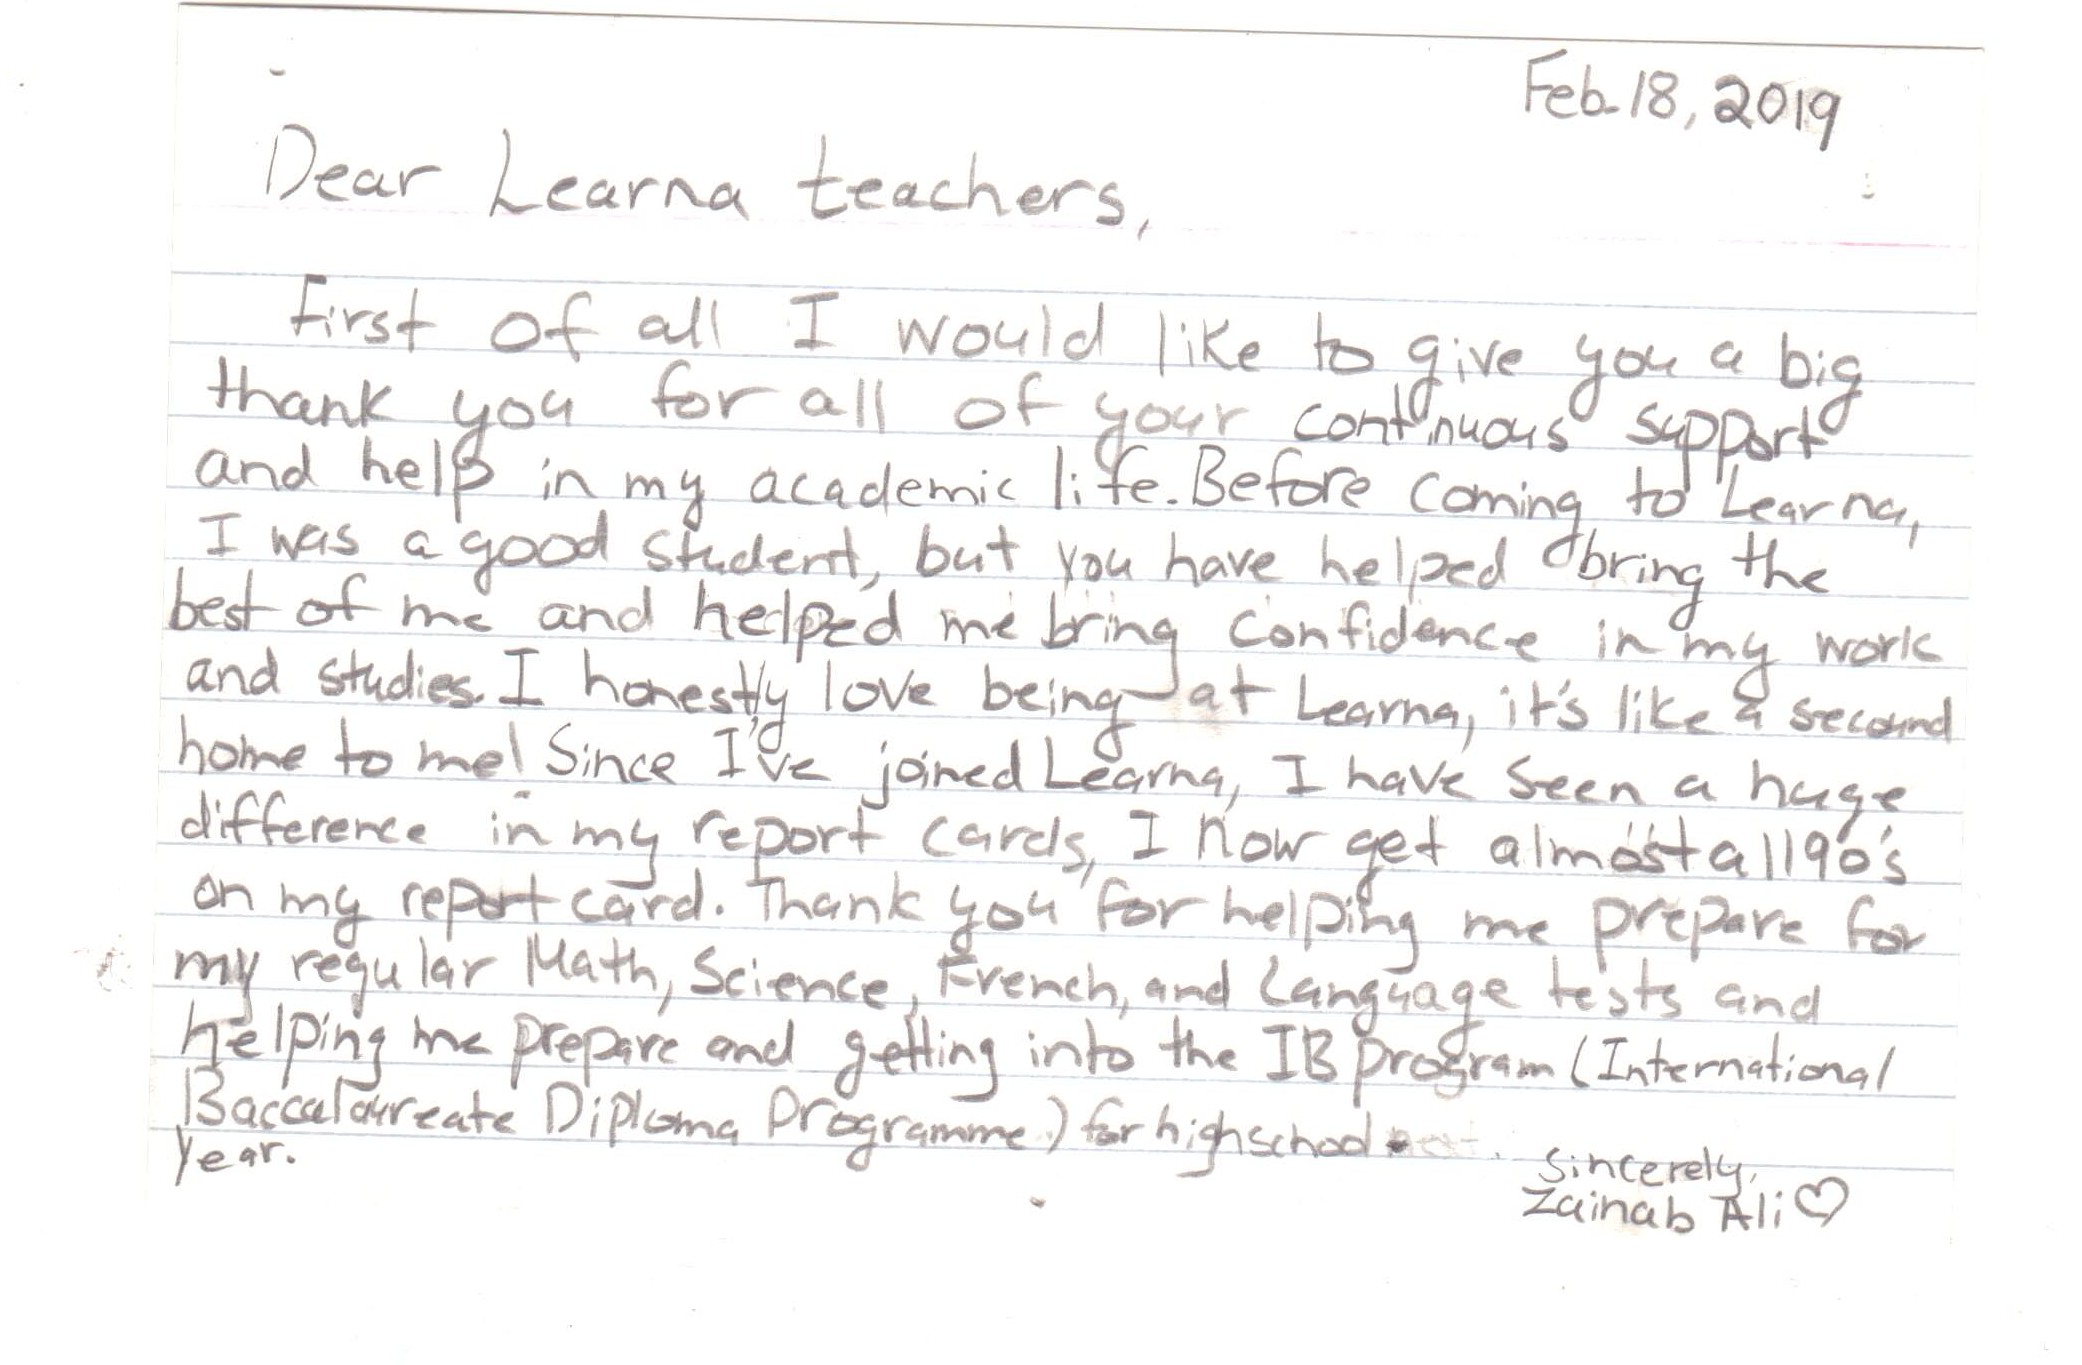 Feb. 18, 2019
Dear Learna teachers,
First of all I would like to give you a big
thank you for all of your continuous support
and help in my academic life. Before coming to Learna,
I was a good student, but you have helped bring the
best of me and helped me bring confidence in my work
and studies. I honestly love being at Learna, it's like a second
home to me! Since I've joined Learna, I have seen a huge
difference in my report cards, I now get almost all 90's
on my report card. Thank you for helping me prepare for
my regular Math, Science, French, and Language tests and
helping me prepare and getting into the IB program (International
Baccalaureate Diploma Programme) for highschool
year.
Sincerely,
Zainab Ali ♡